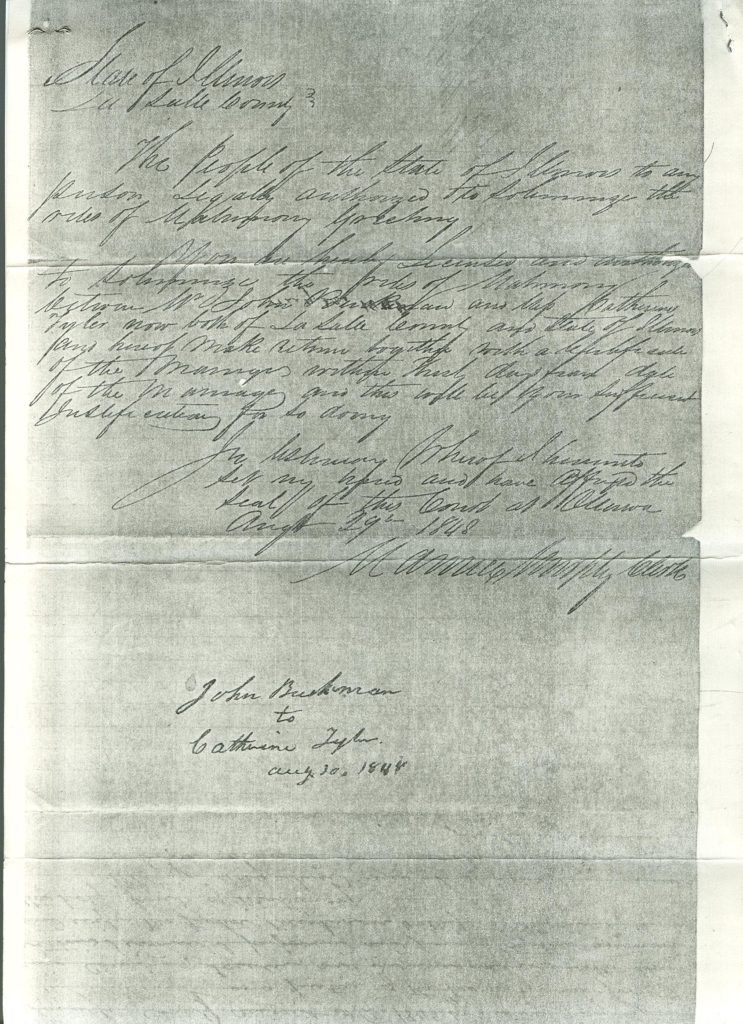 State of Illinois
La Salle County
The People of the State of Illinois to any
person Legally authorized to Solemnize the
rites of Matrimony Greeting
You are hereby Licensed and
to Solemnize the rites of Matrimony
between Mr John and Miss Catherine
Tyler now both of La Salle County and State of Illinois
and hereof make return together with a
of the Marriage within thirty days from date
of the Marriage and this will be your sufficient
for so doing
In testimony Whereof I hereunto
set my hand and have affixed the
Seal of this Court at Ottawa
Augt 29th 1848
Murphy Clerk
John Buckman
to
Catherine Tyler.
aug 30, 1848